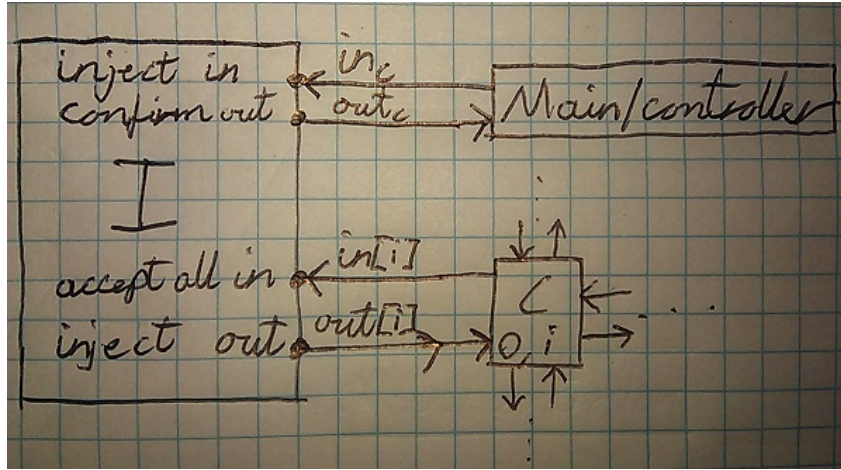 inject in
confirm out
in_c
out_c
Main/controller
I
accept all in
inject out
in[i]
out[i]
C
0,i